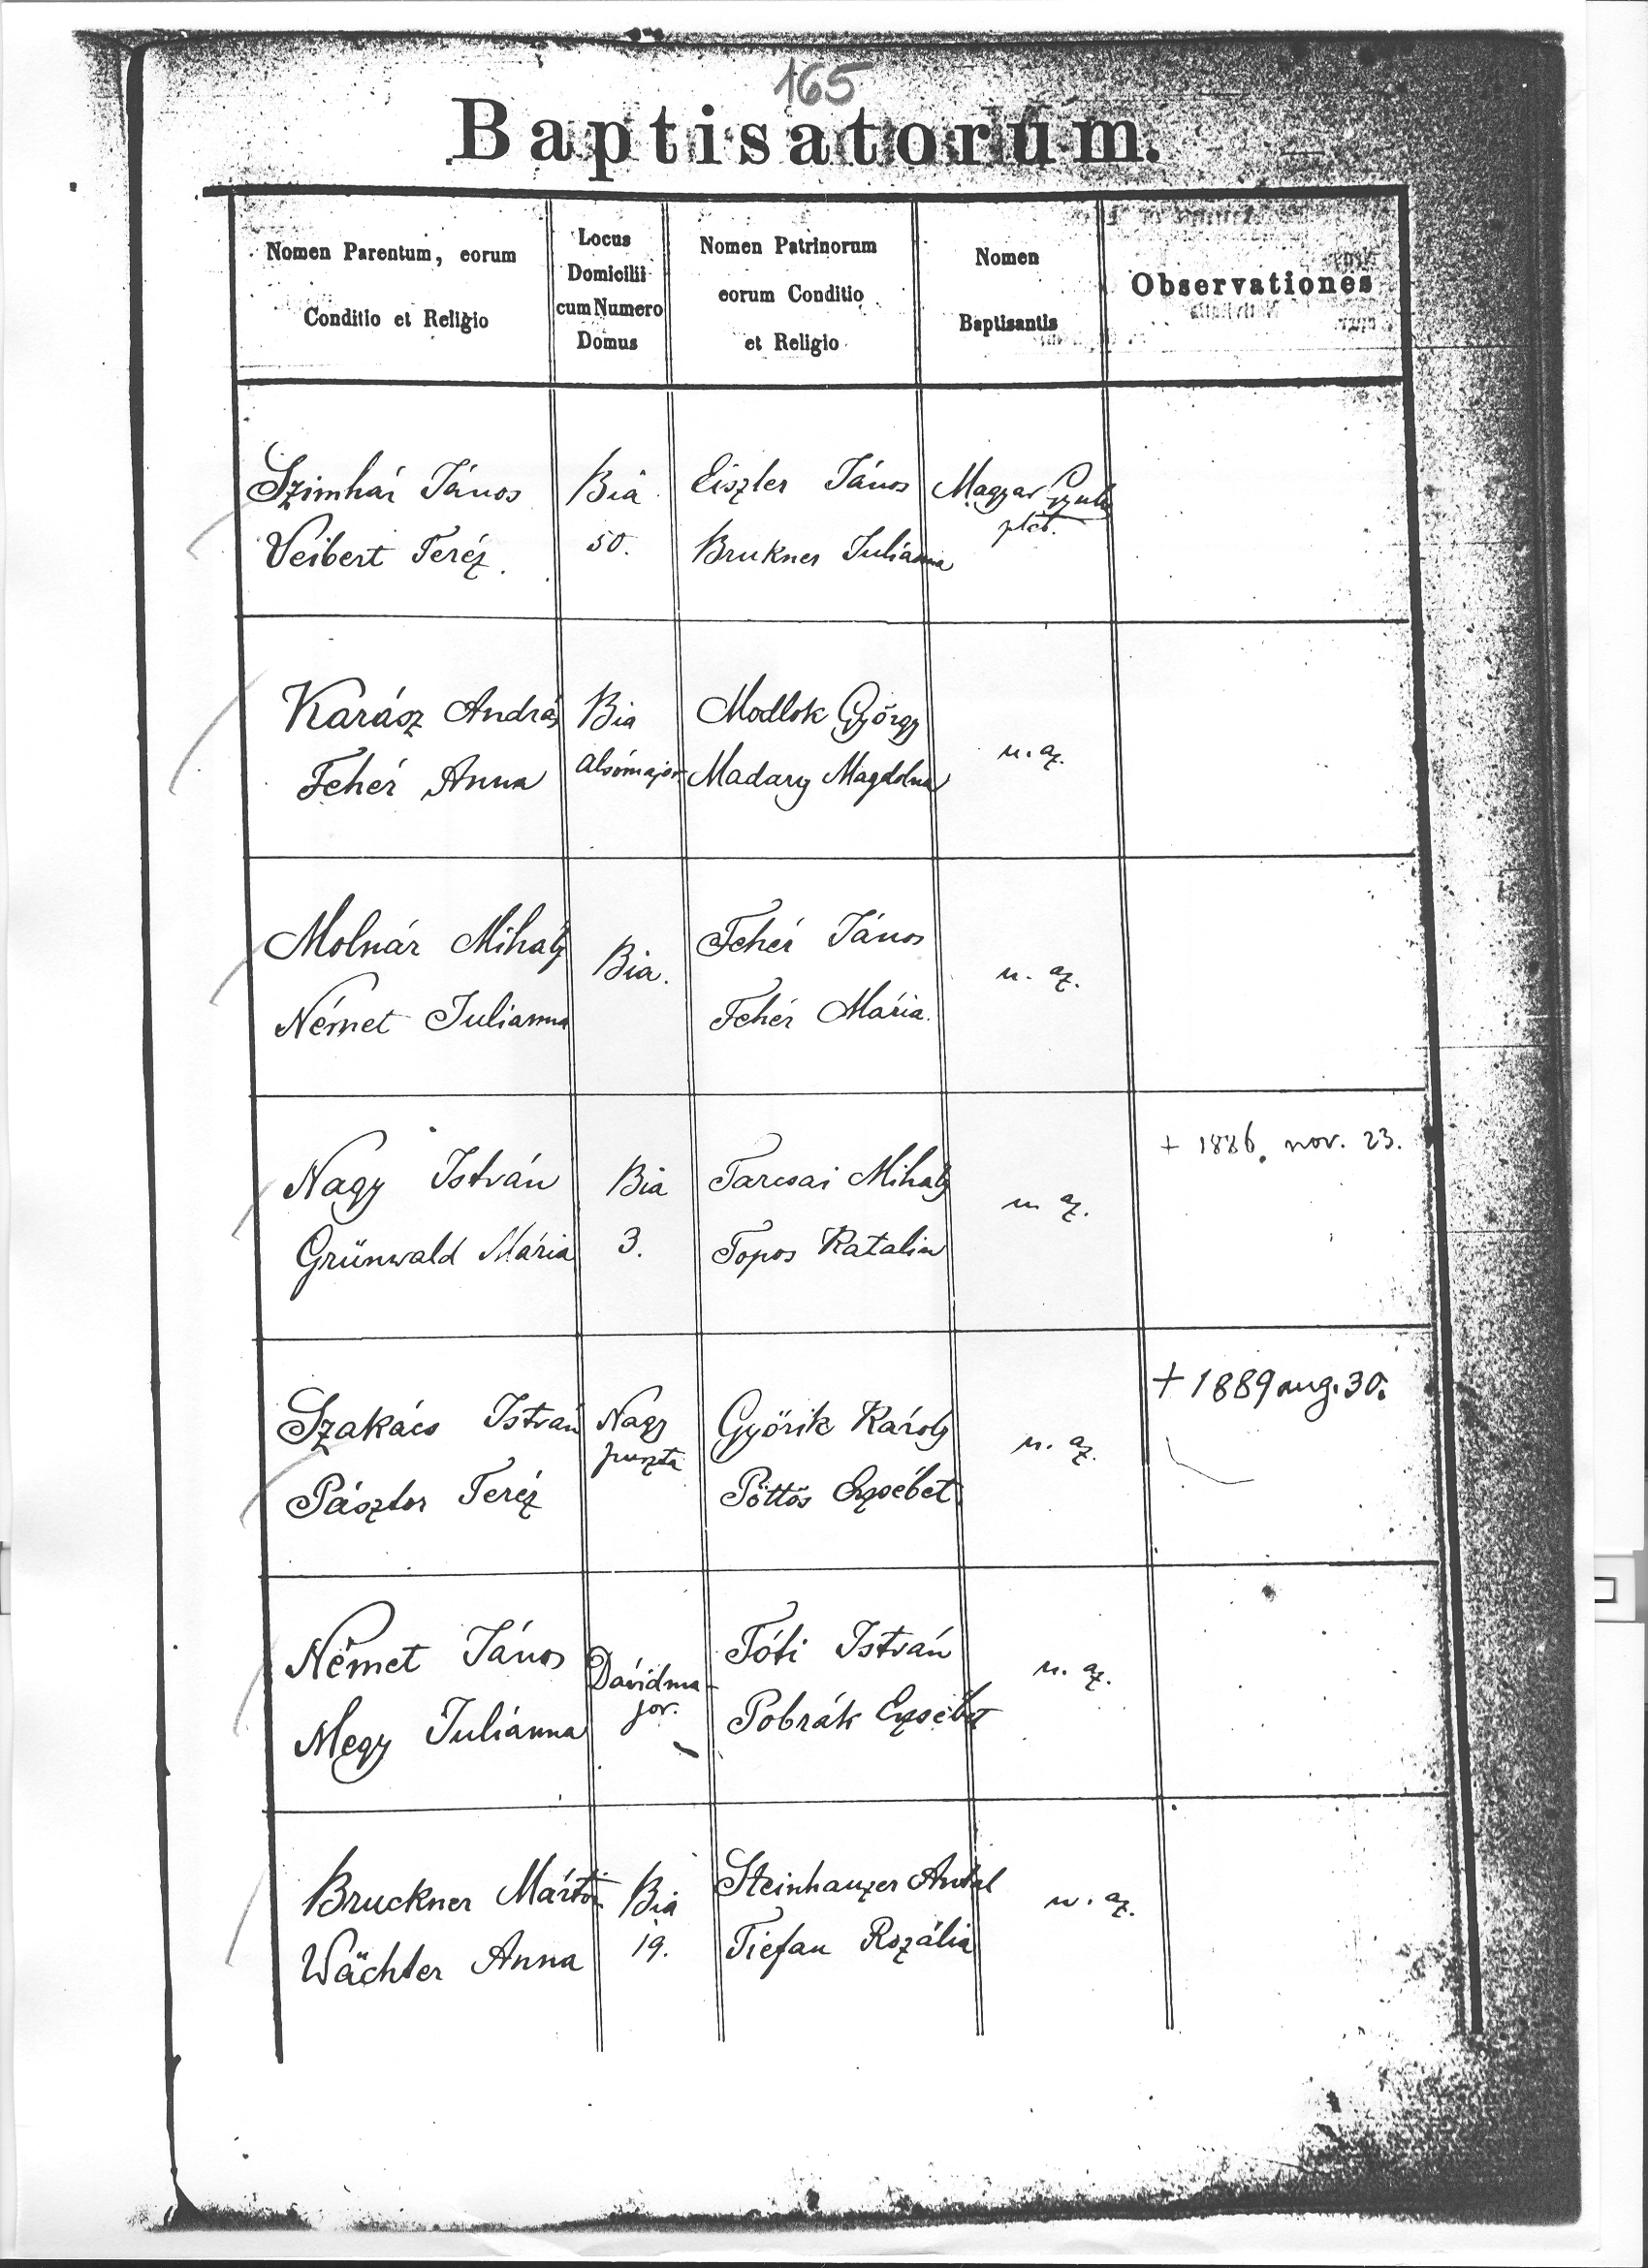 165
Baptisatorum.
Nomen Parentum, eorum
Conditio et Religio
Locus
Domicilii
cum Numero
Domus
Nomen Patrinorum
eorum Conditio
et Religio
Nomen
Baptisantis
Observationes
Szimhár János
Veibert Teréz.
Bia
50.
Eiszler János
Brukner Julianna
Magyar Gyula
pléb.
Karász András
Fehér Anna
Bia
alsómajor
Modlok György
Madary Magdolna
u. az.
Molnár Mihály
Német Julianna
Bia.
Fehér János
Fehér Mária.
u. az.
Nagy István
Grünwald Mária
Bia
3.
Tarcsai Mihály
Topos Katalin
u. az.
+ 1886. nov. 23.
Szakács István
Pásztor Teréz
Nagy
puszta
Győrik Károly
Pöttös Erzsébet
u. az.
+ 1889 aug. 30.
Német János
Megy Juliánna
Dávidma-
jor.
Tóti István
Pobrák Erzsébet
u. az.
Bruckner Márton
Wächter Anna
Bia
19.
Steinhauzer Antal
Tiefan Rozália
u. az.